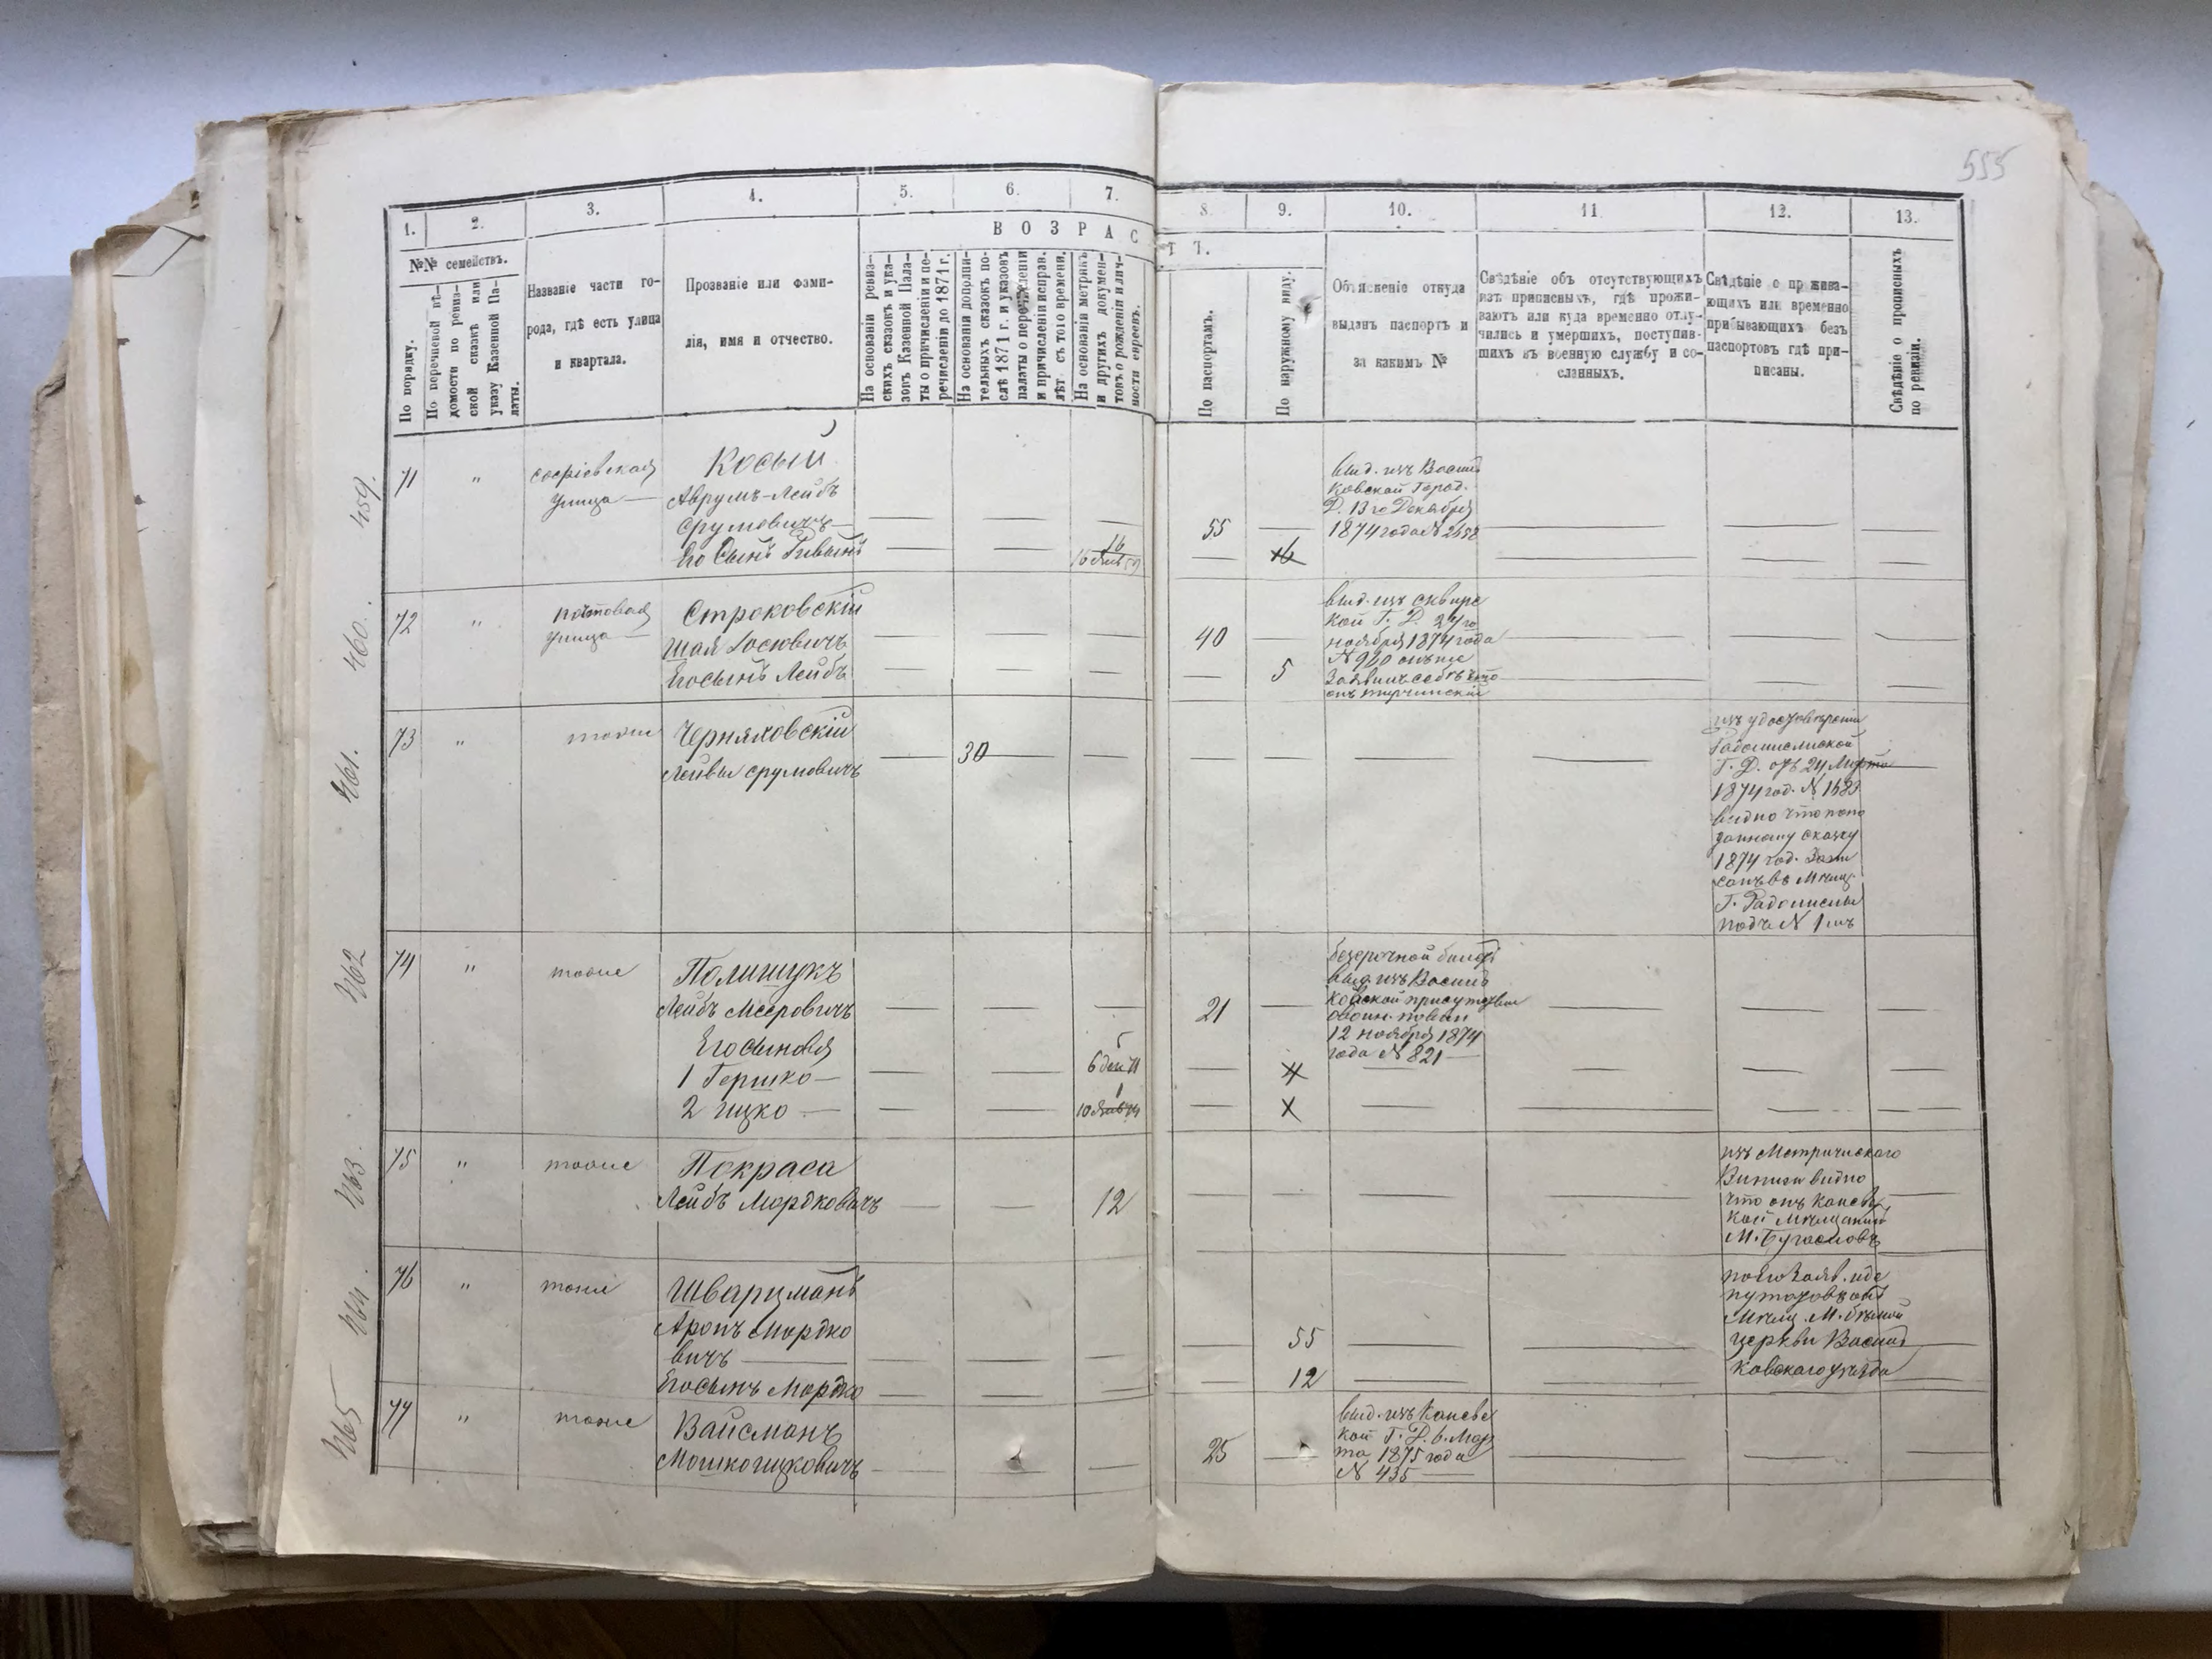 555
1.
2.
3.
4.
5.
6.
7.
8.
9.
10.
11
12.
13.
В О З Р А С
Т Ъ.
№№ семействъ.
По порядку.
По перечневой вѣ-
домости по ревиз-
ской сказкѣ или
указу Казенной Па-
латы.
Названіе части го-
рода, гдѣ есть улица
и квартала.
Прозваніе или фами-
лія, имя и отчество.
На основаніи ревиз-
скихъ сказокъ и ука-
зовъ Казенной Пала-
ты о причисленіи и пе-
речисленіи до 1871 г.
На основаніи дополни-
тельныхъ сказокъ по-
слѣ 1871 г. и указовъ
палаты о перечисленіи
и причисленіи исправ.
лѣт съ того времени.
На основаніи метрикъ
и другихъ докумен-
товъ о рожденіи и лич-
ности евреевъ.
По паспортамъ.
По наружному виду.
Объясненіе откуда
выданъ паспортъ и
за какимъ №
Свѣдѣніе объ отсутствующихъ
изъ приписныхъ, гдѣ прожи-
ваютъ или куда временно отлу-
чились и умершихъ, поступив-
шихъ въ военную службу и со-
сланныхъ.
Свѣдѣніе о прожива-
ющихъ или временно
прибывающихъ безъ
паспортовъ гдѣ при-
писаны.
Свѣдѣніе о прописныхъ
по ревизіи.
459.
71
"
софіевская
улица
Косый
Аврумъ-Лейбъ
Срумовичъ
Его Сынъ
16
55
16
выд. изъ Василь
ковской Город.
Д. 13го Декабря
1874 года №
460.
72
"
почтовая
улица
Строковскій
Шая Іосіовичъ
Его сынъ Лейбъ
40
5
выд. изъ сквирс
кой Г. Д. 27го
ноября 1874 года
№ 920 онъ же
461.
73
"
тоже
Черняховскій
Лейвы срумовичъ
30
изъ удостовѣренія
Радомисльской
Г. Д. отъ 24 Марта
1874 год. №
видно что по по
данному сказку
1874 год. Запи
санъ въ Мѣщ.
Г. Радомислы
подъ № 1мъ
462
74
"
тоже
Полищукъ
Лейбъ Меровичъ
Его сыновя
1 Гершко
2 ицко
5
6 дек 71
1
10 Янв 74
21
4
безсрочной билетъ
выд. изъ Василь
ковской присутствія
о воин. повин
12 ноября 1874
года № 821
463
75
"
тоже
Покраса
Лейбъ Мордковичъ
12
изъ Метрическаго
видно
что онъ Канев
кой Мѣщанинъ
М. Богуслова
464.
76
"
тоже
Шварцманъ
Аронъ Мордко
вичъ
Его сынъ Мордко
55
12
Мѣщ. М. бѣлой
церкви Василь
ковскаго уѣзда
465
77
"
тоже
Вайсманъ
Мошко ицковичъ
25
выд. изъ Каневс
кой Г. Д. 6. Мар
та 1875 года
№ 435